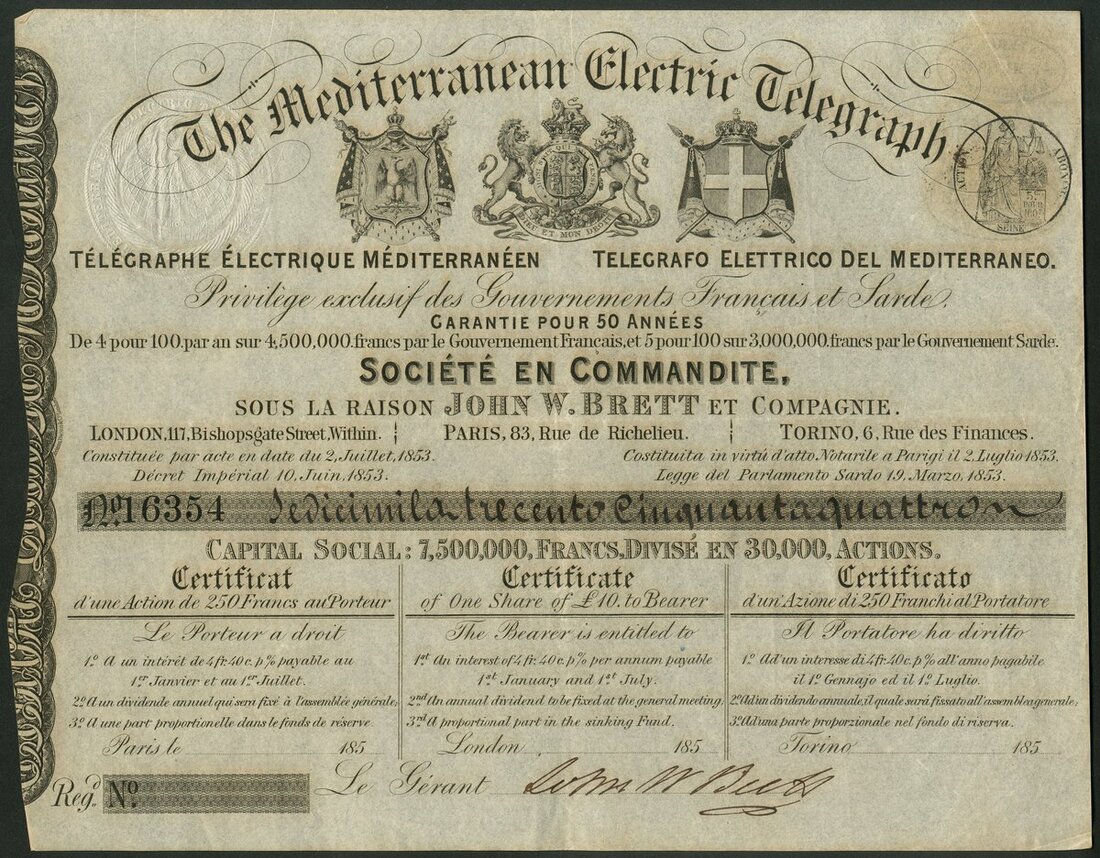 The Mediterranean Electric Telegraph
DIEU ET MON DROIT
SEINE
TÉLÉGRAPHE ÉLECTRIQUE MÉDITERRANÉEN TELEGRAFO ELETTRICO DEL MEDITERRANEO.
Privilège exclusif des Gouvernements Français et Sarde.
GARANTIE POUR 50 ANNÉES
De 4 pour 100. par an sur 4,500,000. francs par le Gouvernement Français, et 5 pour 100 sur 3,000,000. francs par le Gouvernement Sarde.
SOCIÉTÉ EN COMMANDITE,
SOUS LA RAISON JOHN W. BRETT ET COMPAGNIE.
LONDON, 117, Bishopsgate Street, Within. PARIS, 83, Rue de Richelieu. TORINO, 6, Rue des Finances.
Constituée par acte en date du 2, Juillet, 1853. Costituita in virtú d'atto, Notarile a Parigi il 2. Luglio 1853.
Décret Impérial 10, Juin, 1853. Legge del Parlamento Sardo 19, Marzo, 1853.
No. 16354 Sedicimila trecento Cinquantaquattro
CAPITAL SOCIAL: 7,500,000, FRANCS, DIVISÉ EN 30,000, ACTIONS.
Certificat
d'une Action de 250 Francs au Porteur
Le Porteur a droit
1º A un intérêt de 4 fr. 40 c. p% payable au
1er Janvier et au 1er Juillet.
2º A un dividende annuel qui sera fixé à l'assemblée générale;
3º A une part proportionelle dans le fonds de réserve.
Paris le 185
Certificate
of One Share of £10. to Bearer
The Bearer is entitled to
1st An interest of 4 fr. 40c. p% per annum payable
1st January and 1st July.
2nd An annual dividend to be fixed at the general meeting.
3rd A proportional part in the sinking Fund.
London 185
Certificato
d'un'Azione di 250 Franchi al Portatore
Il Portatore ha diritto
1º Ad'un interesse di 4 fr. 40 c. p% all'anno pagabile
il 1º Gennajo ed il 1º Luglio.
2º Ad'un dividendo annuale, il quale sará fissato all'assemblea generale;
3º Ad'una parte proporzionale nel fondo di riserva.
Torino 185
Regd. No.
Le Gérant John W Brett